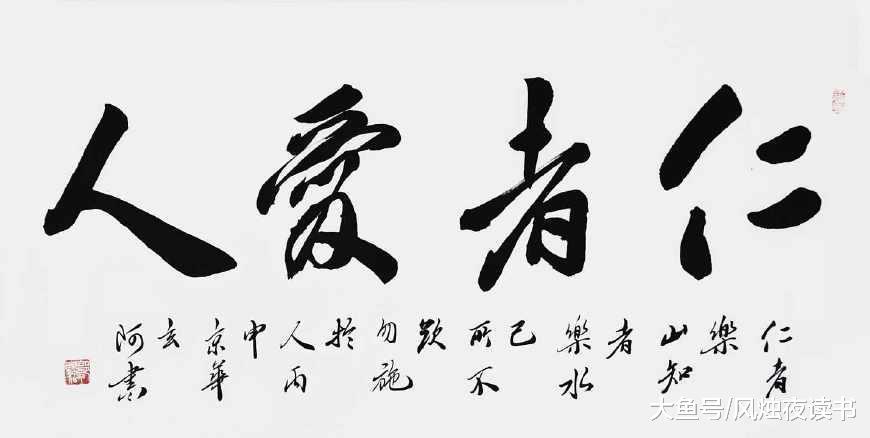 仁者愛人
仁者
樂
山知
者
樂水
己
所不
欲
勿施
於
人丙
申
京華
玄
阿書
大鱼号/风烛夜读书